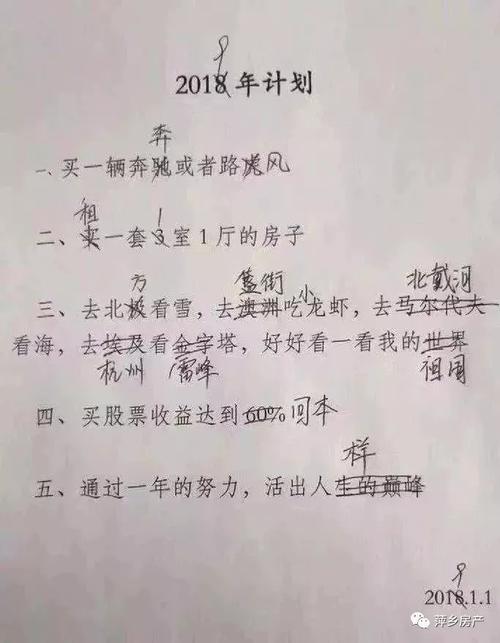 9
2018年计划
奔
一、买一辆奔驰或者路虎风
租 1
二、买一套3室1厅的房子
方 簋街 小 北戴河
三、去北极看雪，去澳洲吃龙虾，去马尔代夫
看海，去埃及看金字塔，好好看一看我的世界
杭州 雷峰 祖国
四、买股票收益达到60%回本
样
五、通过一年的努力，活出人生的巅峰
9
2018.1.1
萍乡房产